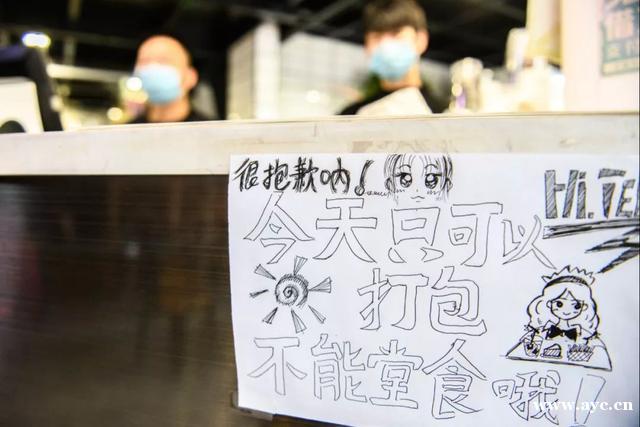 很抱歉呐！
今天只可以
打包
不能堂食哦！
Hi.TE
www.ayc.cn